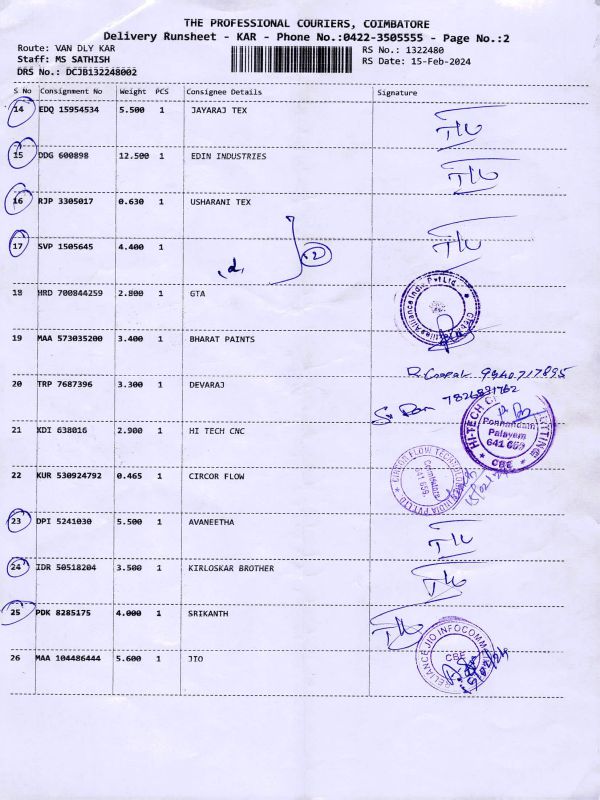 THE PROFESSIONAL COURIERS, COIMBATORE
Delivery Runsheet - KAR - Phone No.:0422-3505555 - Page No.:2
Route: VAN DLY KAR RS No.: 1322480
Staff: MS SATHISH RS Date: 15-Feb-2024
DRS No.: DCJB132248002
S No Consignment No Weight PCS Consignee Details Signature
14 EDQ 15954534 5.500 1 JAYARAJ TEX
15 DDG 600898 12.500 1 EDIN INDUSTRIES
16 RJP 3305017 0.630 1 USHARANI TEX
17 SVP 1505645 4.400 1
18 HRD 700844259 2.800 1 GTA
19 MAA 573035200 3.400 1 BHARAT PAINTS
9940717895
20 TRP 7687396 3.300 1 DEVARAJ
7826891762
21 XDI 638016 2.900 1 HI TECH CNC
HI-TECH
Palayam
641 659
CBE
22 KUR 530924792 0.465 1 CIRCOR FLOW
CIRCOR FLOW TECHNOLOGIES INDIA PVT LTD
Coimbatore
641 659.
23 DPI 5241030 5.500 1 AVANEETHA
24 IDR 50518204 3.500 1 KIRLOSKAR BROTHER
25 PDK 8285175 4.000 1 SRIKANTH
26 MAA 104486444 5.600 1 JIO
RELIANCE JIO INFOCOMM
CBE
15/02/24